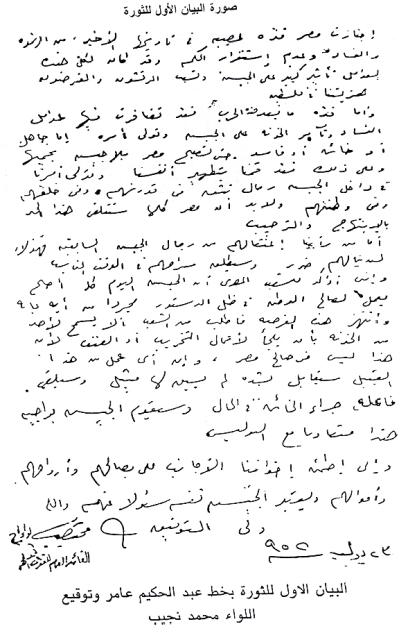 صورة البيان الأول للثورة
اجتازت مصر فترة عصيبة في تاريخها الأخير من الرشوة
والفساد وعدم استقرار الحكم وقد كان لكل هذه
العوامل تأثير كبير على الجيش وتسبب المرتشون والمغرضون في
هزيمتنا في فلسطين
وأما فترة ما بعد هذه الحرب فقد تضافرت فيها عوامل
الفساد وتآمر الخونة على الجيش وتولى أمره إما جاهل
أو خائن أو فاسد حتى تصبح مصر بلا جيش يحميها
وعلى ذلك فقد قمنا بتطهير أنفسنا وتولى أمرنا
في داخل الجيش رجال نثق في قدرتهم وفي خلقهم
وفي وطنيتهم ولابد أن مصر كلها ستتلقى هذا الخبر
بالابتهاج والترحيب
أما من رأينا اعتقالهم من رجال الجيش السابقين فهؤلاء
لن ينالهم ضرر وسيطلق سراحهم في الوقت المناسب
وإني أؤكد للشعب المصري أن الجيش اليوم كله أصبح
يعمل لصالح الوطن في ظل الدستور مجردا من أية غاية
وأنتهز هذه الفرصة فأطلب من الشعب ألا يسمح لأحد
من الخونة بأن يلجأ لأعمال التخريب أو العنف لأن
هذا ليس في صالح مصر وإن أي عمل من هذا
القبيل سيقابل بشدة لم يسبق لها مثيل وسيلقى
فاعله جزاء الخائن في الحال وسيقوم الجيش بواجبه
هذا متعاونا مع البوليس
وإني أطمئن إخواننا الأجانب على مصالحهم وأرواحهم
وأموالهم ويعتبر الجيش نفسه مسئولا عنهم والله
ولي التوفيق
٢٣ يوليو ٩٥٢
البيان الاول للثورة بخط عبد الحكيم عامر وتوقيع
اللواء محمد نجيب